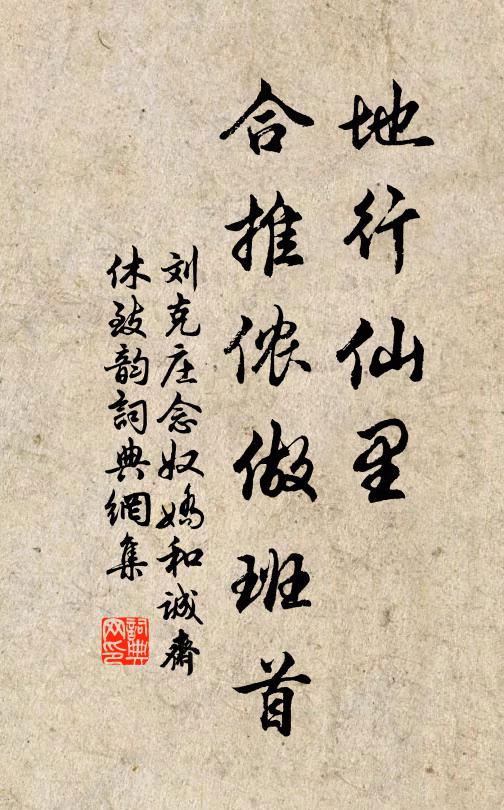 地行仙里
合推侬做班首
刘克庄念奴娇和诚斋
休致韵詞典網集
詞典网印